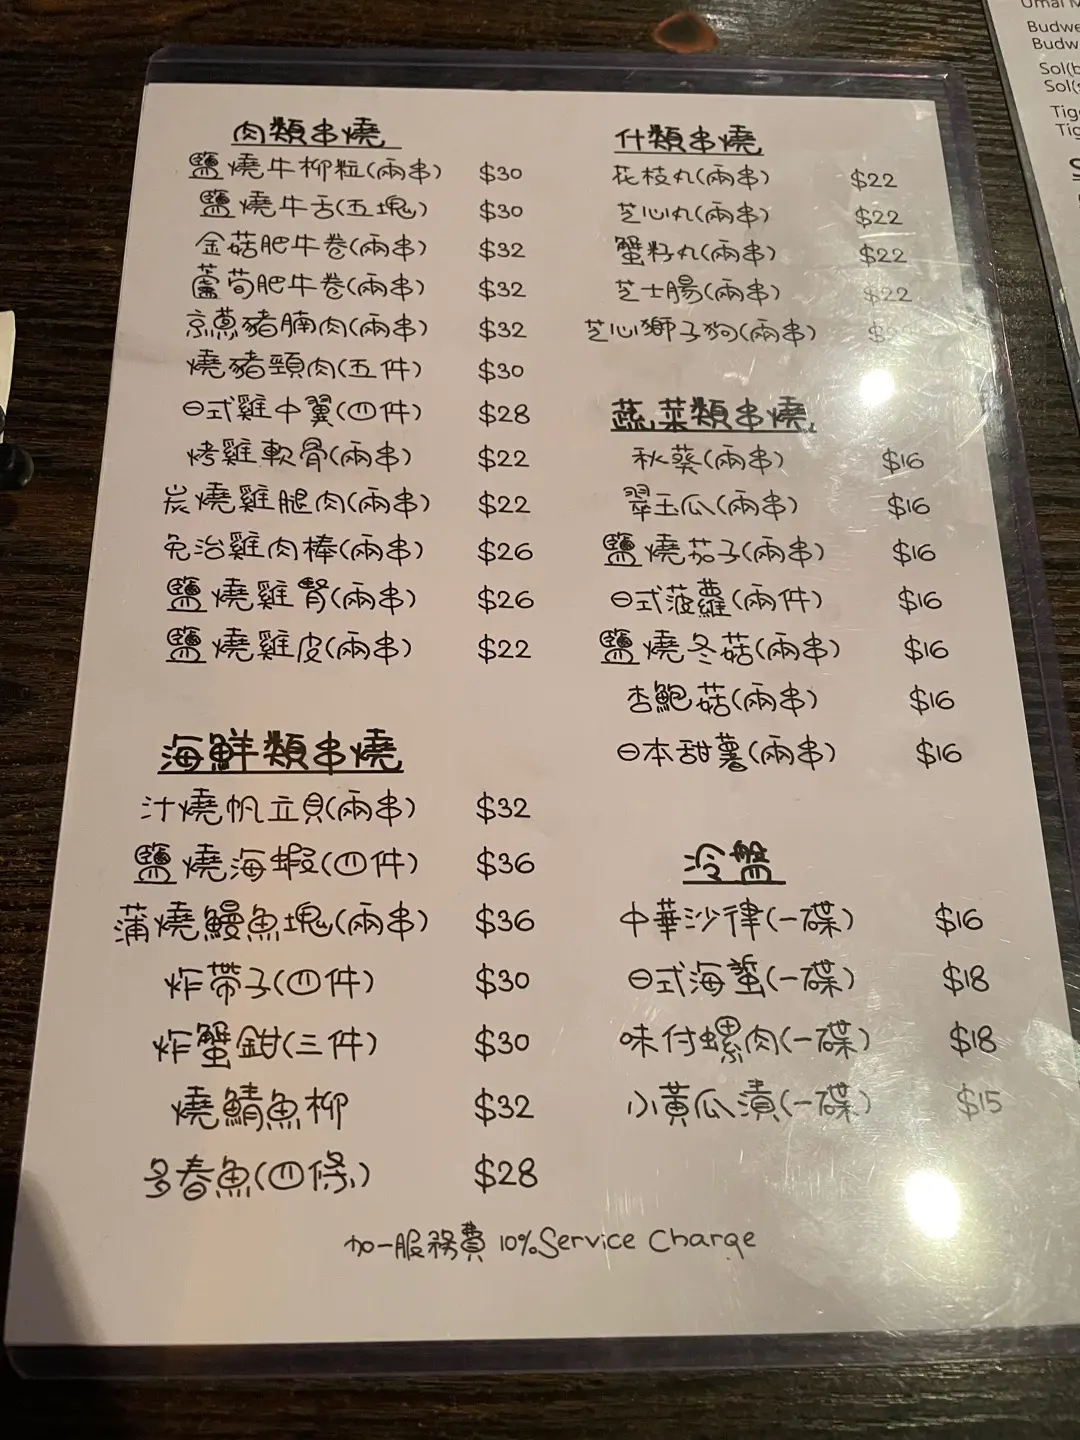 肉類串燒
鹽燒牛柳粒(兩串) $30
鹽燒牛舌(五塊) $30
金菇肥牛卷(兩串) $32
蘆筍肥牛卷(兩串) $32
京蔥豬腩肉(兩串) $32
燒豬頸肉(五件) $30
日式雞中翼(四件) $28
烤雞軟骨(兩串) $22
炭燒雞腿肉(兩串) $22
免治雞肉棒(兩串) $26
鹽燒雞腎(兩串) $26
鹽燒雞皮(兩串) $22
海鮮類串燒
汁燒帆立貝(兩串) $32
鹽燒海蝦(四件) $36
蒲燒鰻魚塊(兩串) $36
炸帶子(四件) $30
炸蟹鉗(三件) $30
燒鯖魚柳 $32
多春魚(四條) $28
什類串燒
花枝丸(兩串) $22
芝心丸(兩串) $22
蟹籽丸(兩串) $22
芝士腸(兩串) $22
芝心獅子狗(兩串)
蔬菜類串燒
秋葵(兩串) $16
翠玉瓜(兩串) $16
鹽燒茄子(兩串) $16
日式菠蘿(兩件) $16
鹽燒冬菇(兩串) $16
杏鮑菇(兩串) $16
日本甜薯(兩串) $16
冷盤
中華沙律(一碟) $16
日式海蜇(一碟) $18
味付螺肉(一碟) $18
小黃瓜漬(一碟) $15
加一服務費 10% Service Charge
Budwe
Budw
Sol(b
Sol(
Tig
Tig